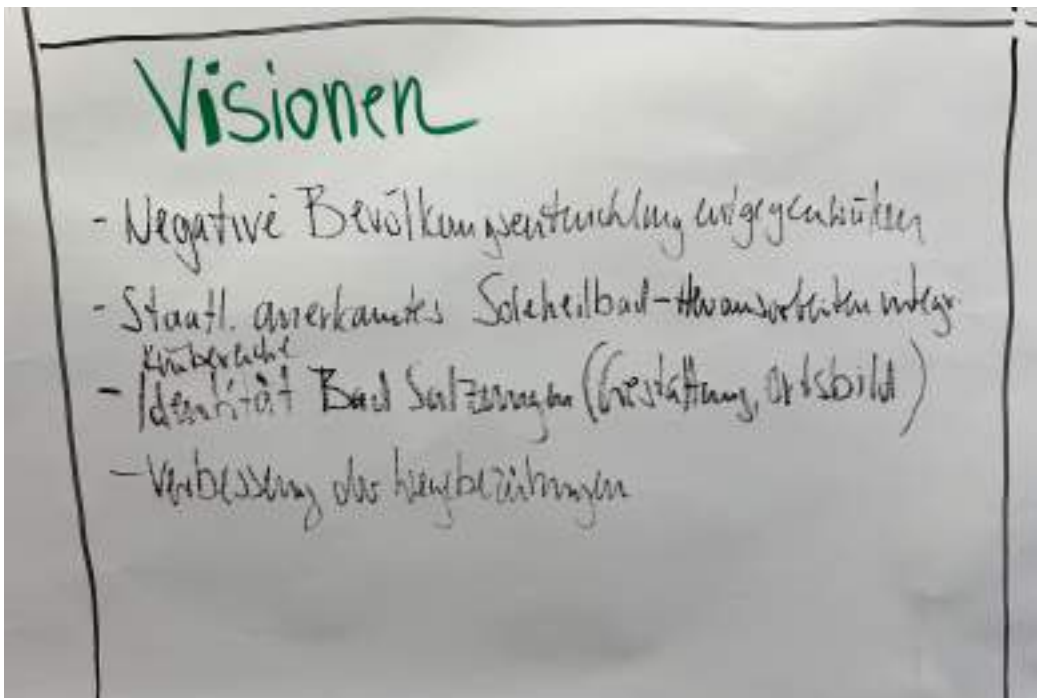 Visionen
- Negative Bevölkungsentwicklung entgegenwirken
- Staatl. anerkanntes Soleheilbad - Herausarbeiten
Kurbereiche
- Identität Bad Salzungen (Gestaltung, Ortsbild)
- Verbesserung der Wegbeziehungen